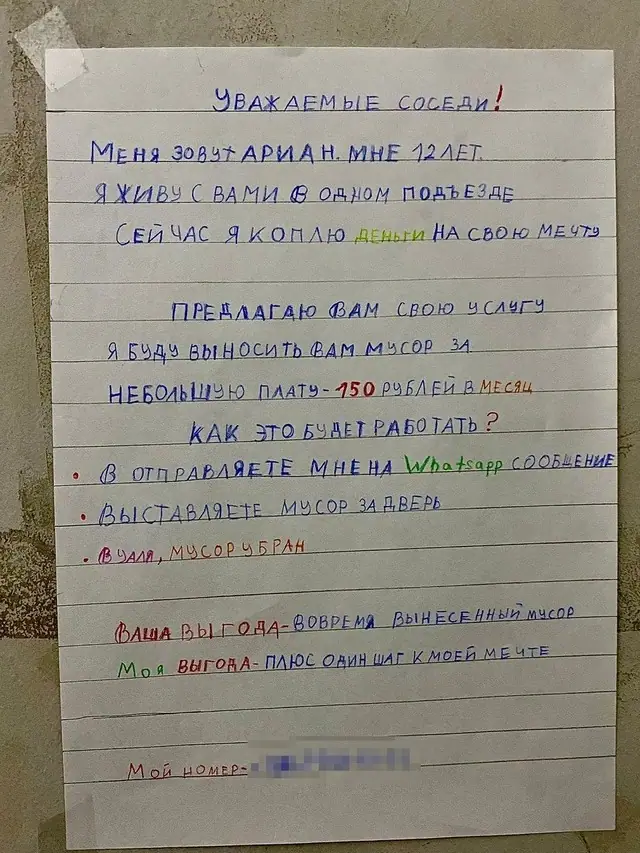 УВАЖАЕМЫЕ СОСЕДИ!
МЕНЯ ЗОВУТ АРИАН. МНЕ 12 ЛЕТ.
Я ЖИВУ С ВАМИ В ОДНОМ ПОДЪЕЗДЕ
СЕЙЧАС Я КОПЛЮ ДЕНЬГИ НА СВОЮ МЕЧТУ
ПРЕДЛАГАЮ ВАМ СВОЮ УСЛУГУ
Я БУДУ ВЫНОСИТЬ ВАМ МУСОР ЗА
НЕБОЛЬШУЮ ПЛАТУ-150 РУБЛЕЙ В МЕСЯЦ
КАК ЭТО БУДЕТ РАБОТАТЬ?
• В ОТПРАВЛЯЕТЕ МНЕ НА Whatsapp СООБЩЕНИЕ
• ВЫСТАВЛЯЕТЕ МУСОР ЗА ДВЕРЬ
• ВУАЛЯ, МУСОР УБРАН
ВАША ВЫГОДА-ВОВРЕМЯ ВЫНЕСЕННЫЙ МУСОР
МОЯ ВЫГОДА-ПЛЮС ОДИН ШАГ К МОЕЙ МЕЧТЕ
МОЙ НОМЕР-